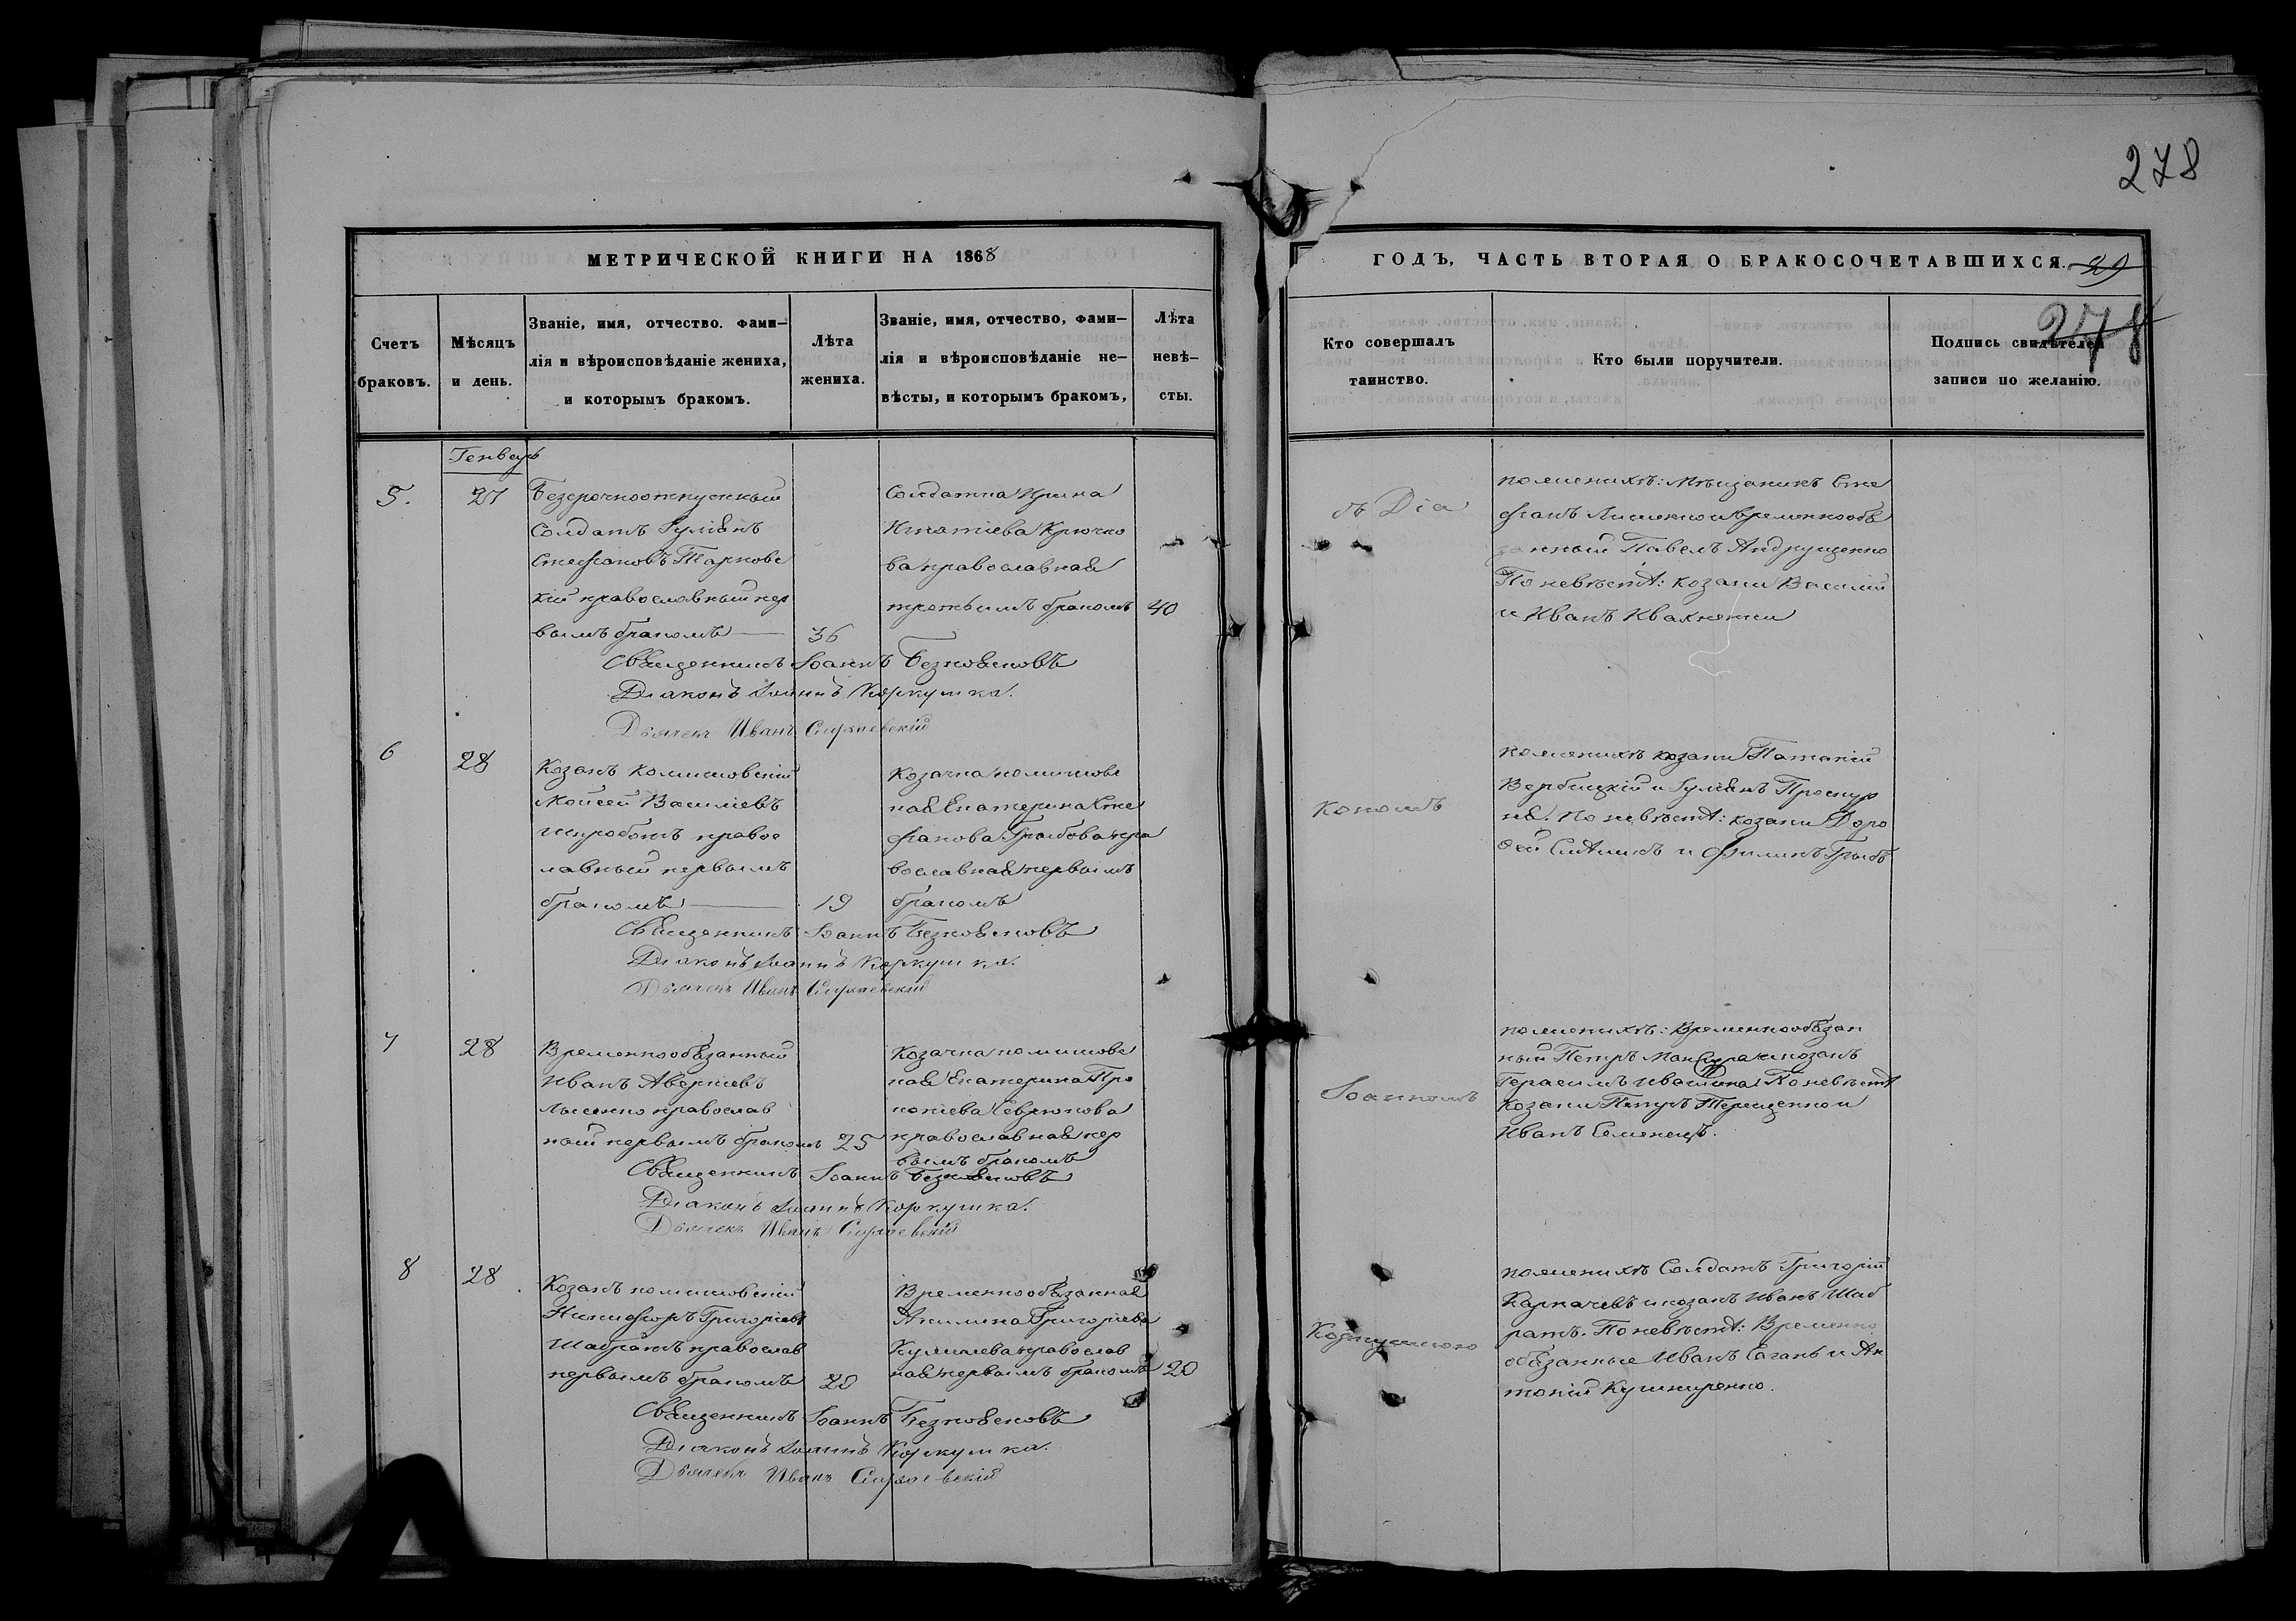 278
МЕТРИЧЕСКОЙ КНИГИ НА 1868
ГОДЪ, ЧАСТЬ ВТОРАЯ О БРАКОСОЧЕТАВШИХСЯ. 29
278
Счетъ браковъ.
Мѣсяцъ и день.
Званіе, имя, отчество. фами-
лія и вѣроисповѣданіе жениха,
и которымъ бракомъ.
Лѣта жениха.
Званіе, имя, отчество, фами-
лія и вѣроисповѣданіе не-
вѣсты, и которымъ бракомъ,
Лѣта невѣ-
сты.
Кто совершалъ таинство.
Кто были поручители.
Подпись свидѣтелей
записи по желанію.
Генварь
5.
27
Безсрочноотпускный
Солдатъ Іуліанъ
Стефановъ Тарновс
кій православный пер
вымъ бракомъ
36
Солдатка Ирина
Игнатіева Крючко
ва православная
третьимъ бракомъ
40
съ Діа
по женихѣ: Мѣщанинъ Сте
фанъ Лисенко и временнообя
занный Павелъ Андрущенко
По невѣстѣ: козаки Василій
и Иванъ Ивахненки
Священникъ Іоаннъ Безковсновъ
Діаконъ Іоаннъ Коркушка.
Дьячекъ Иванъ
6
28
Козакъ комишовскій
Мойсей Василіевъ
православный первымъ
бракомъ
19
Козачка комишовс
кая Екатерина Сте
фанова Грибова пра
вославная первымъ
бракомъ
кономъ
по женихѣ козаки Патапій
Вербицкій и Іуліанъ Проскур
ня. По невѣстѣ: козаки Доро
фей и Филипъ Грибъ
Священникъ Іоаннъ
Діаконъ Іоаннъ Коркушка.
Дьячекъ Иванъ
7
28
Временнообязанный
Иванъ Аверкіевъ
Лисенко православ
ный первымъ бракомъ
25
Козачка комишовс
кая Екатерина Про
копіева Севрюкова
православная пер
вымъ бракомъ
Іоанномъ
по женихѣ: Временнообязан
ный Петръ и козакъ
Герасимъ Ивашина По невѣстѣ
Козаки Петръ Терещенко и
Иванъ Семенецъ.
Священникъ Іоаннъ
Діаконъ Іоаннъ Коркушка.
Дьячекъ Иванъ
8
28
Козакъ комишовскій
Никифоръ Григоріевъ
Шабратъ православ
первымъ бракомъ
20
Временнообязанная
Акилина Григоріева
православ
ная первымъ бракомъ
20
Коркушкою
по женихѣ Солдатъ Григорій
Каркачевъ и козакъ Иванъ Шаб
ратъ. По невѣстѣ: Временно
обязанные Иванъ Саганъ и Ан
тоній Кушниренко.
Священникъ Іоаннъ
Діаконъ Іоаннъ Коркушка.
Дьячекъ Иванъ